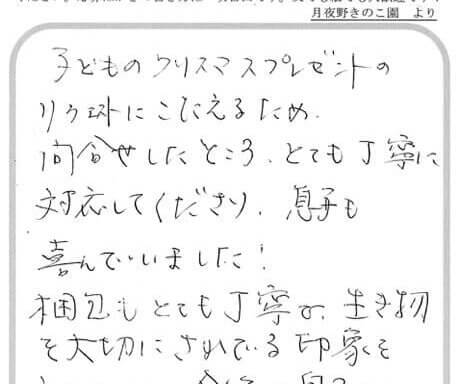 月夜野きのこ園　より
子どものクリスマスプレゼントの
リクエストにこたえるため、
問合せしたところ、とても丁寧に
対応してくださり、息子も
喜んでいました！
梱包もとても丁寧で、生き物
を大切にされている印象を